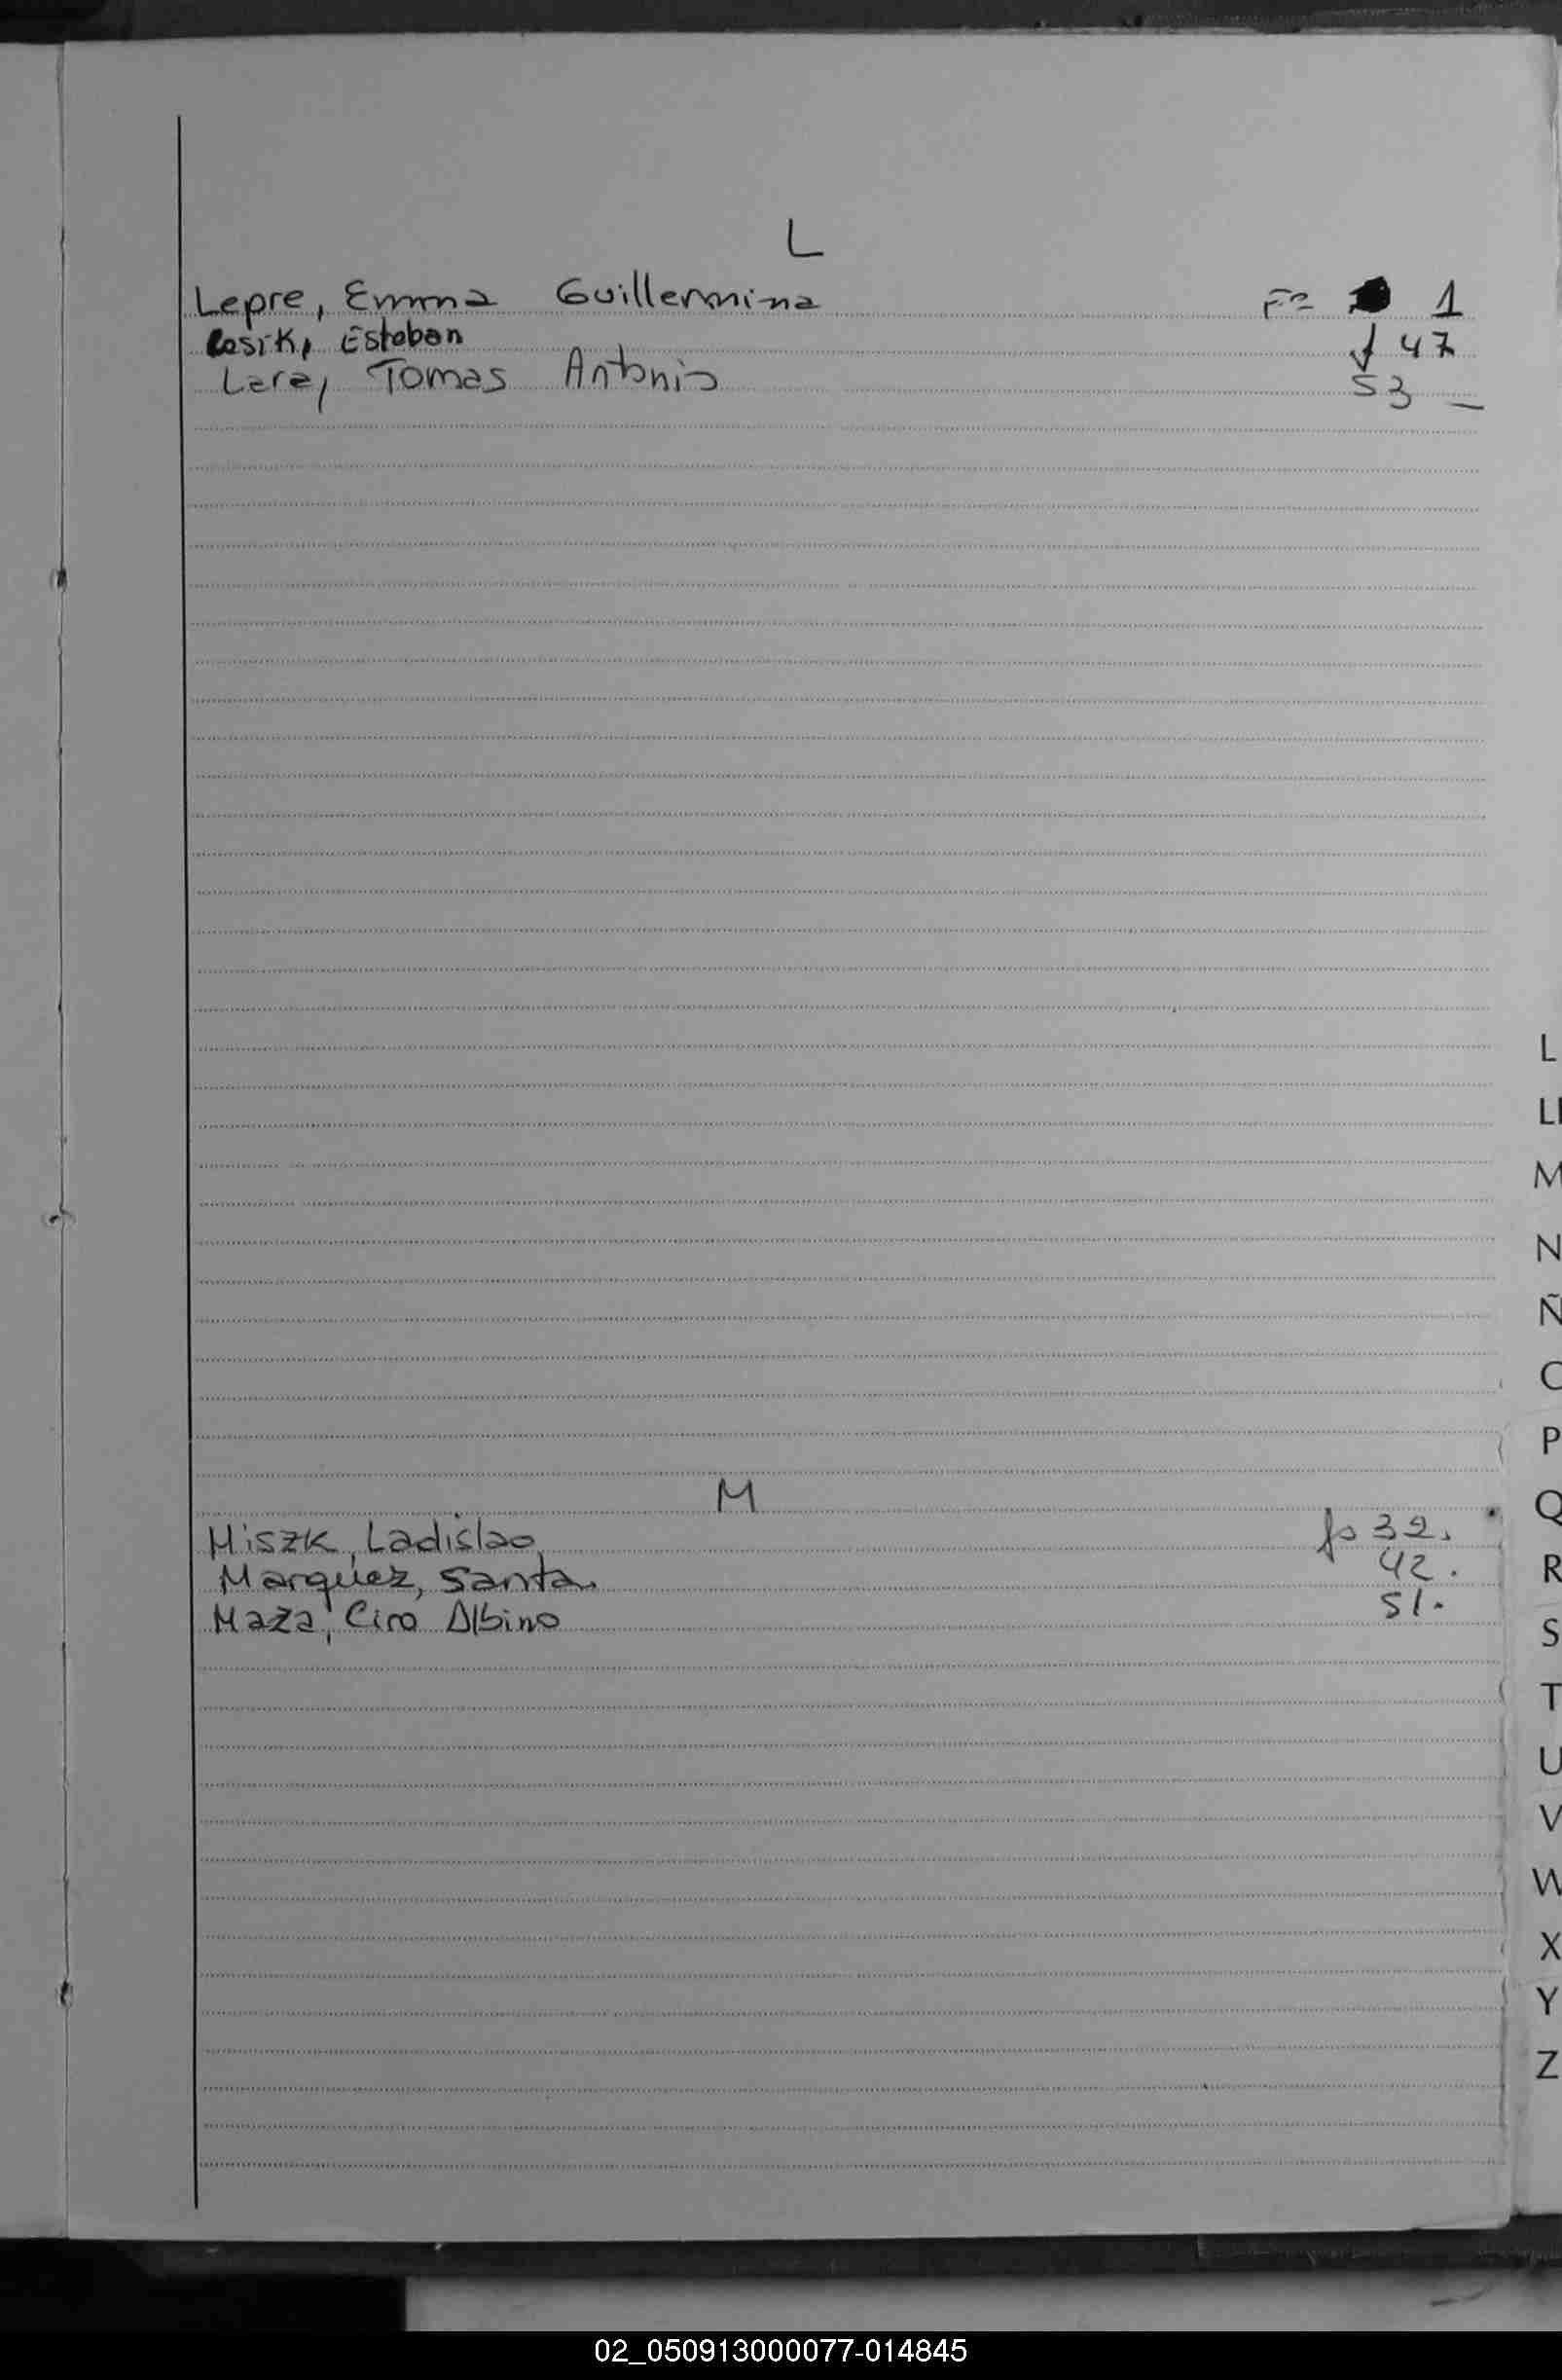 L
Lepre, Emma Guillermina Fº 1
Losik, Esteban f 47
Lara, Tomas Antonio 53 _
M
Miszk, Ladislao fº 32.
Marquez, Santa. 42.
Maza, Ciro Albino 51.
L
Ll
M
N
Ñ
O
P
Q
R
S
T
U
V
W
X
Y
Z
02_050913000077-014845